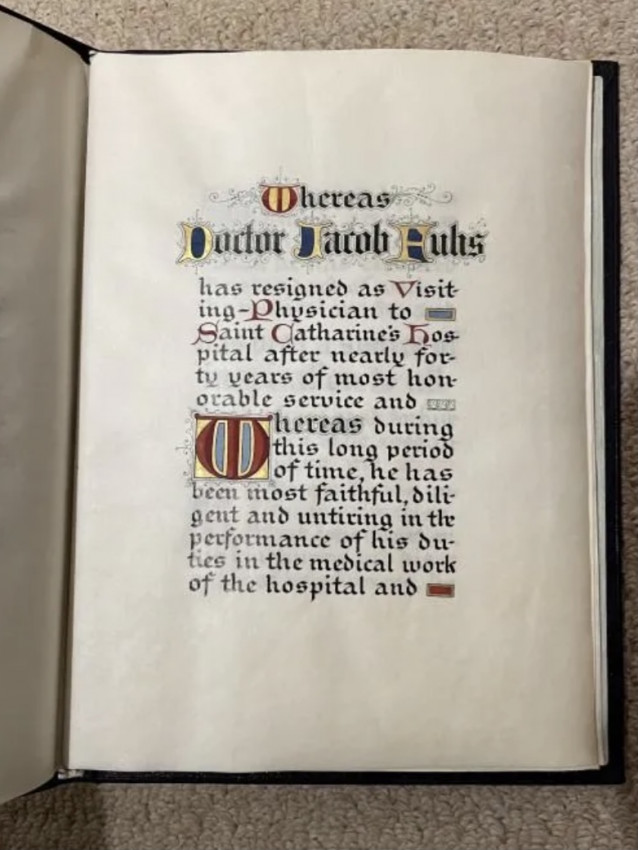 Whereas
Doctor Jacob Fuhs
has resigned as Visit-
ing-Physician to
Saint Catharine's Hos-
pital after nearly for-
ty years of most hon-
orable service and
Whereas during
this long period
of time, he has
been most faithful, dili-
gent and untiring in the
performance of his du-
ties in the medical work
of the hospital and